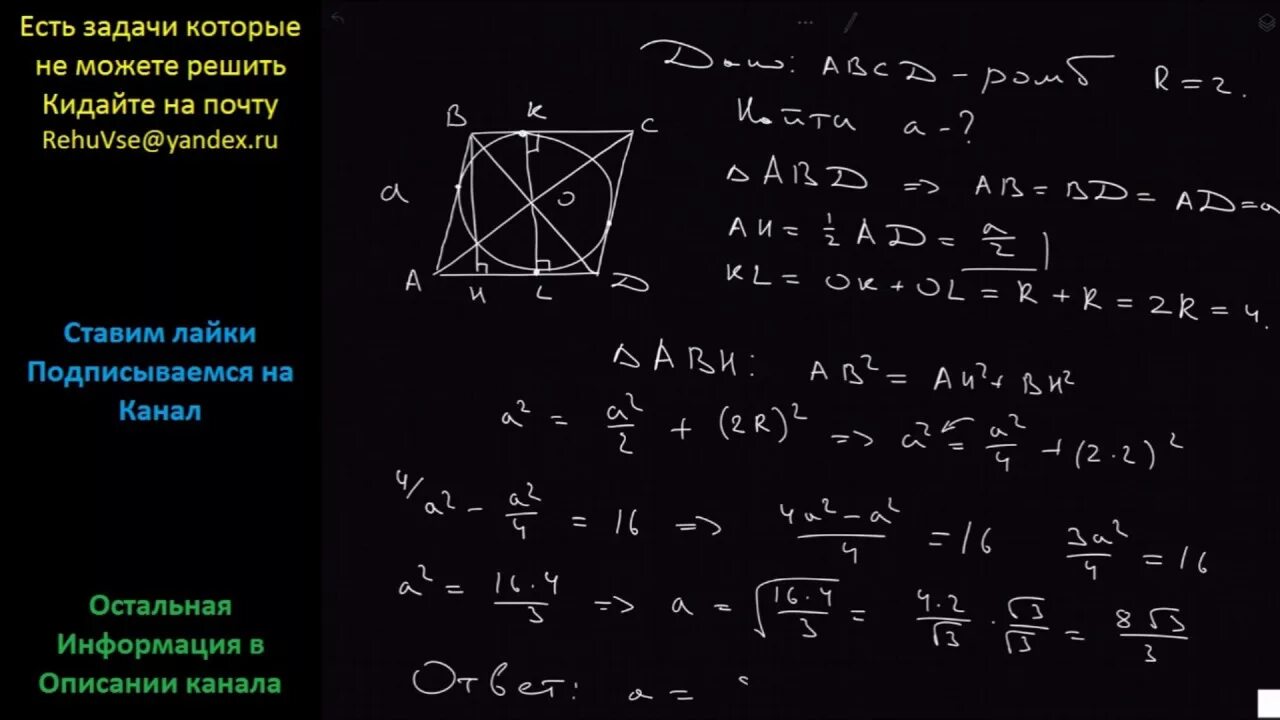 Есть задачи которые
не можете решить
Кидайте на почту
RehuVse@yandex.ru
Ставим лайки
Подписываемся на
Канал
Остальная
Информация в
Описании канала
Дано: ABCD - ромб R = 2.
Найти a - ?
B K C
a O
A H L D
Δ ABD => AB = BD = AD = a
AH = 1/2 AD = a/2
KL = OK + OL = R + R = 2R = 4.
Δ ABH: AB² = AH² + BH²
a² = a²/2 + (2R)² => a² = a²/4 + (2·2)²
4/ a² - a²/4 = 16 => (4a² - a²)/4 = 16 3a²/4 = 16
a² = 16·4/3 => a = √(16·4/3) = 4·2/√3 · √3/√3 = 8√3/3
Ответ: a =